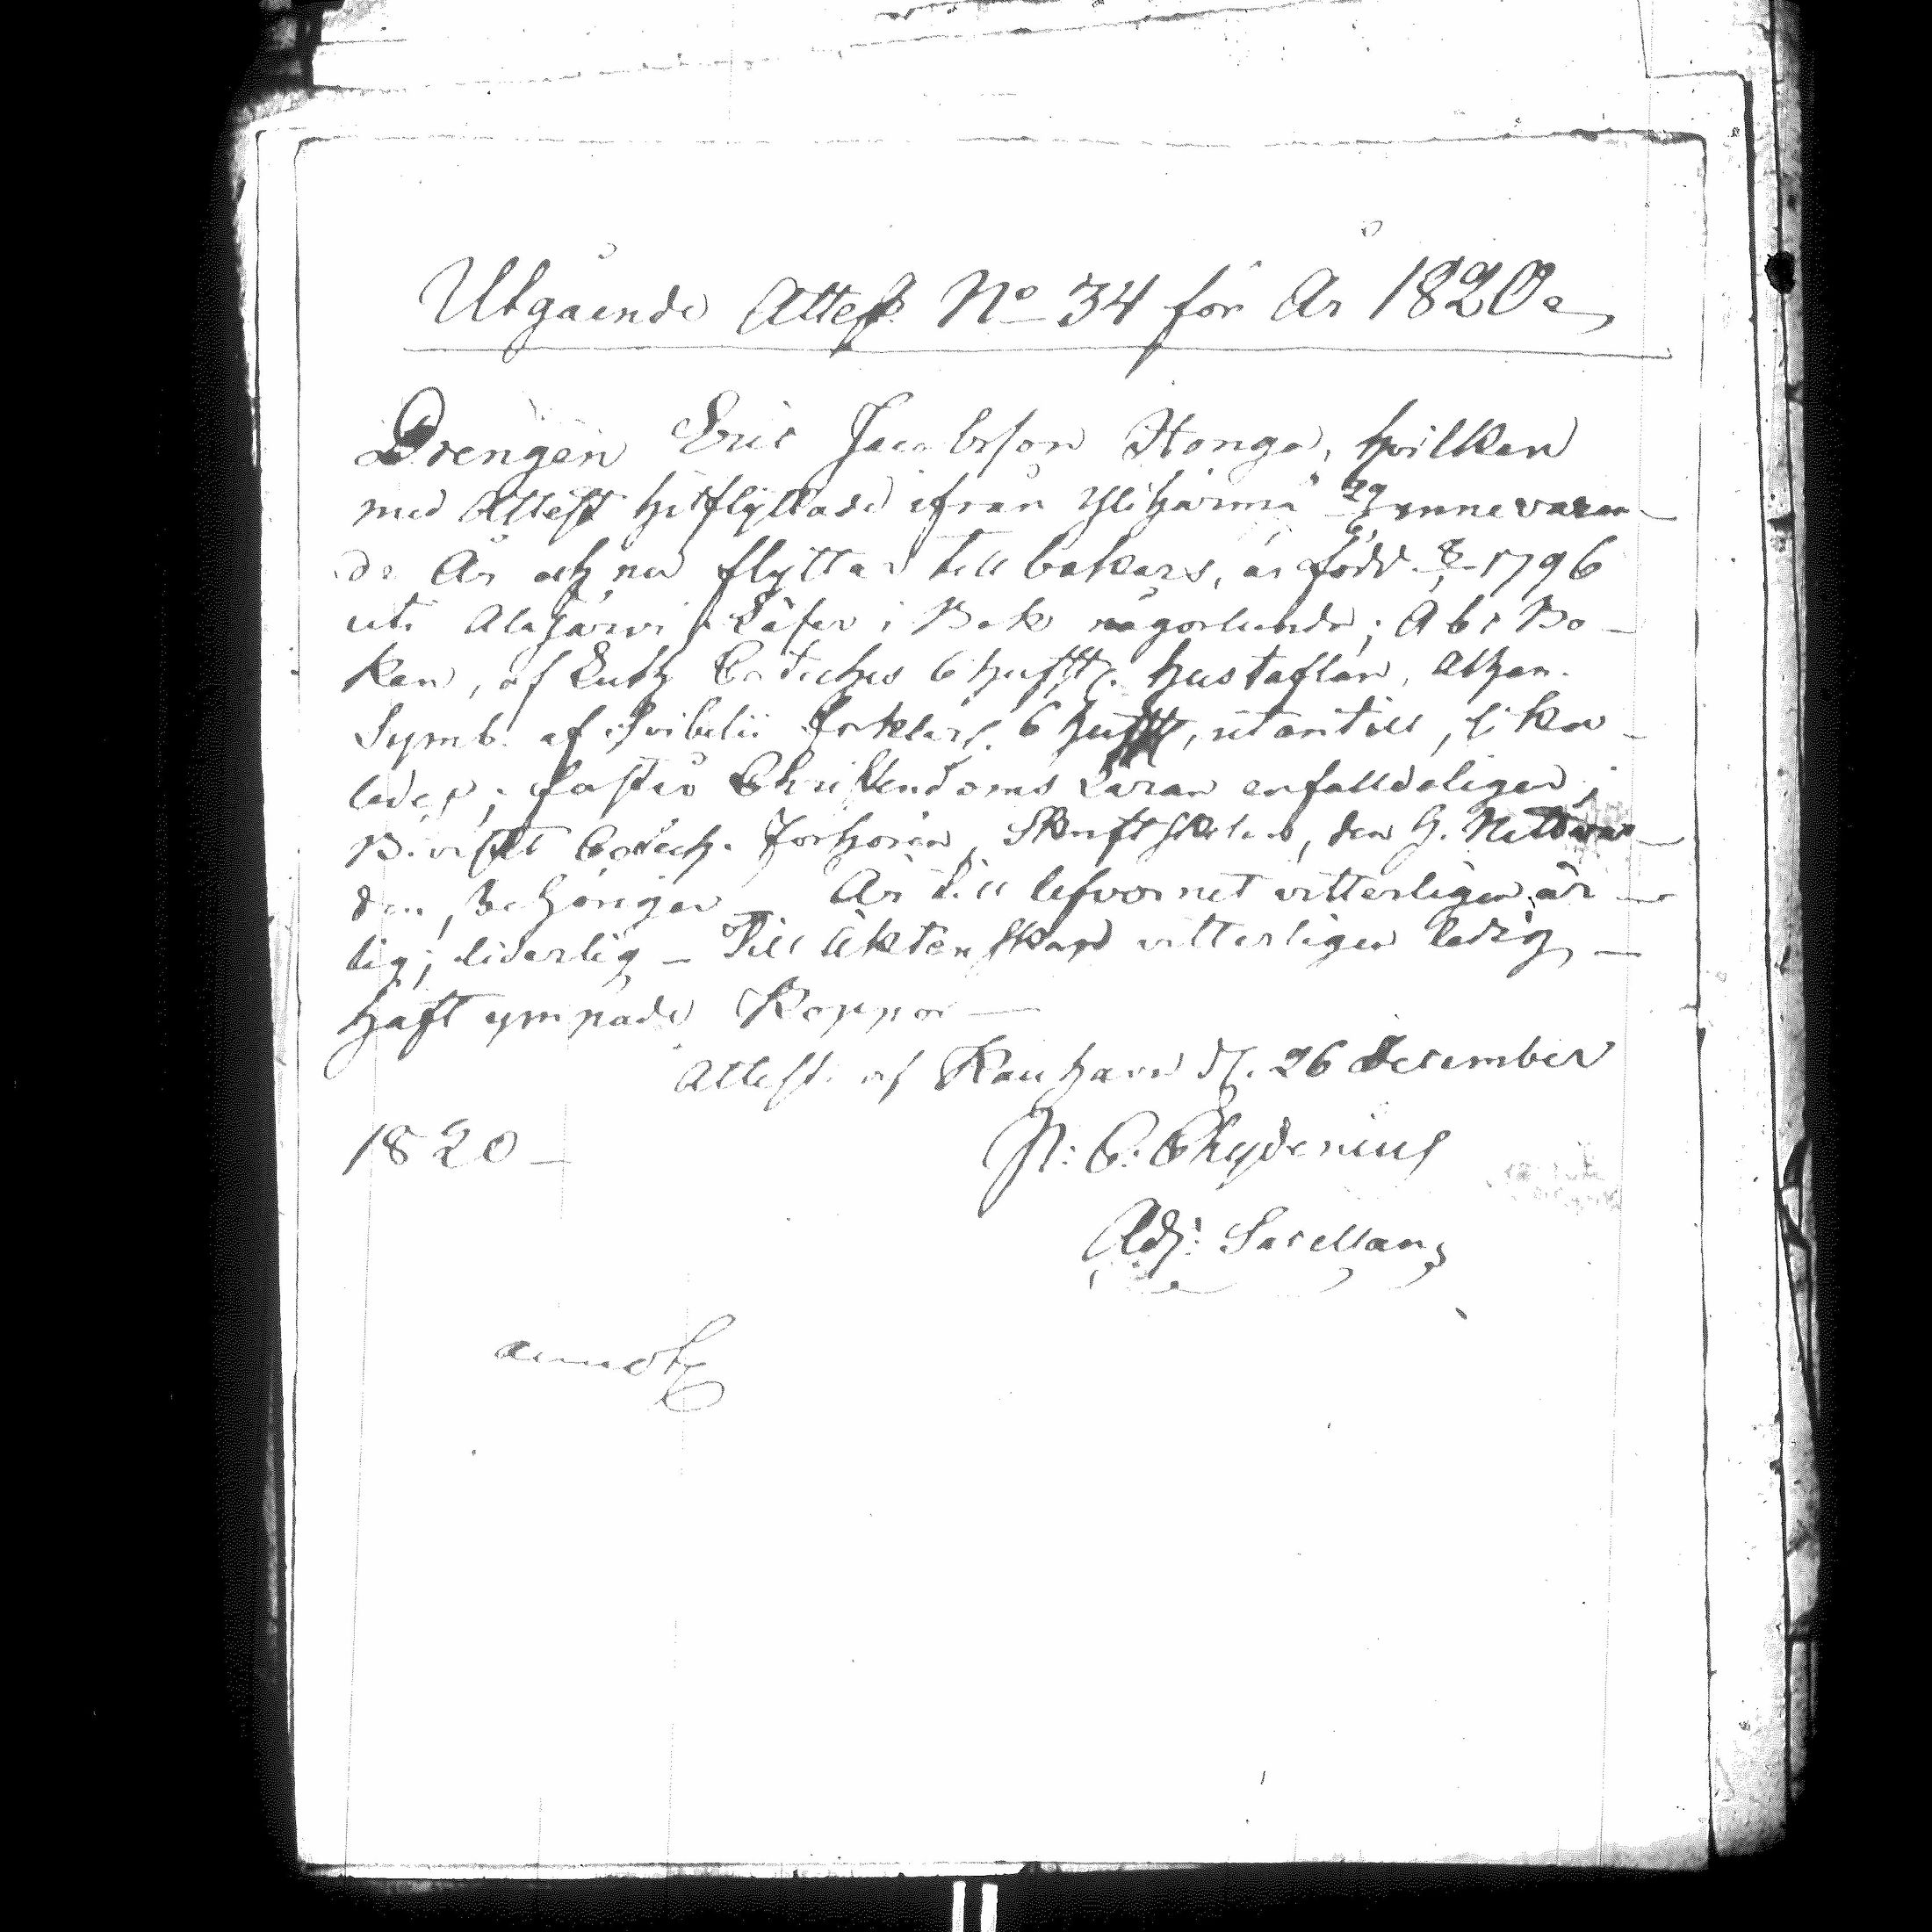 Utgående Attest No 34 för År 1820
Drengen Eric Jacobsson Honga, hvilken
med Attest hitflyttade ifrån Ylihärmä 29 innevaran-
de År och nu flyttar tillbakars, är född 1796
uti Alajärvi; Läser i Bok någorlunda; Abc Bo-
ken, af Luth Catches 6 hufst. hustaflan, Athan.
Symb. af Svibelii förklar. 6 hufst, utantill, lika-
ledes; fattar Christendoms Läran enfalldeligen;
Bivistat Catech. Förhören, Skriftskolan, den H. Nattvar-
den, behörigen Är till lefvernet vitterligen är-
lig; liderlig – Till Äktenskap vitterligen ledig –
Haft ympade Koppor –
Attest. af Kauhava d. 26 December
1820 –
N: C: Chydenius
Adj: Sacellan